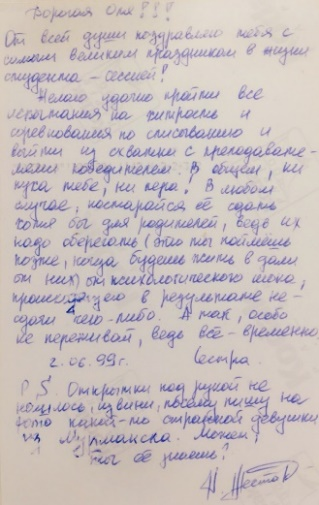 Дорогая Оля!!!
От всей души поздравляю тебя с
самым великим праздником в жизни
студента - сессией!
Желаю удачно пройти все
испытания на хитрость и
соревнования по списыванию и
выйти из схватки с преподавате-
лями победителем. В общем, ни
пуха тебе, ни пера! В любом
случае, постарайся её сдать
хотя бы для родителей, ведь их
надо оберегать (это ты поймёшь
позже, когда будешь жить в дали
от них) от психологического шока,
происходящего в результате не-
сдачи чего-либо. А так, особо
не переживай, ведь всё - временно.
2.06.99г. Сестра.
P.S. Открытки под рукой не
нашлось, извини, поэтому пишу на
фото какой-то странной девушки
из Мурманска. Может,
ты её знаешь?